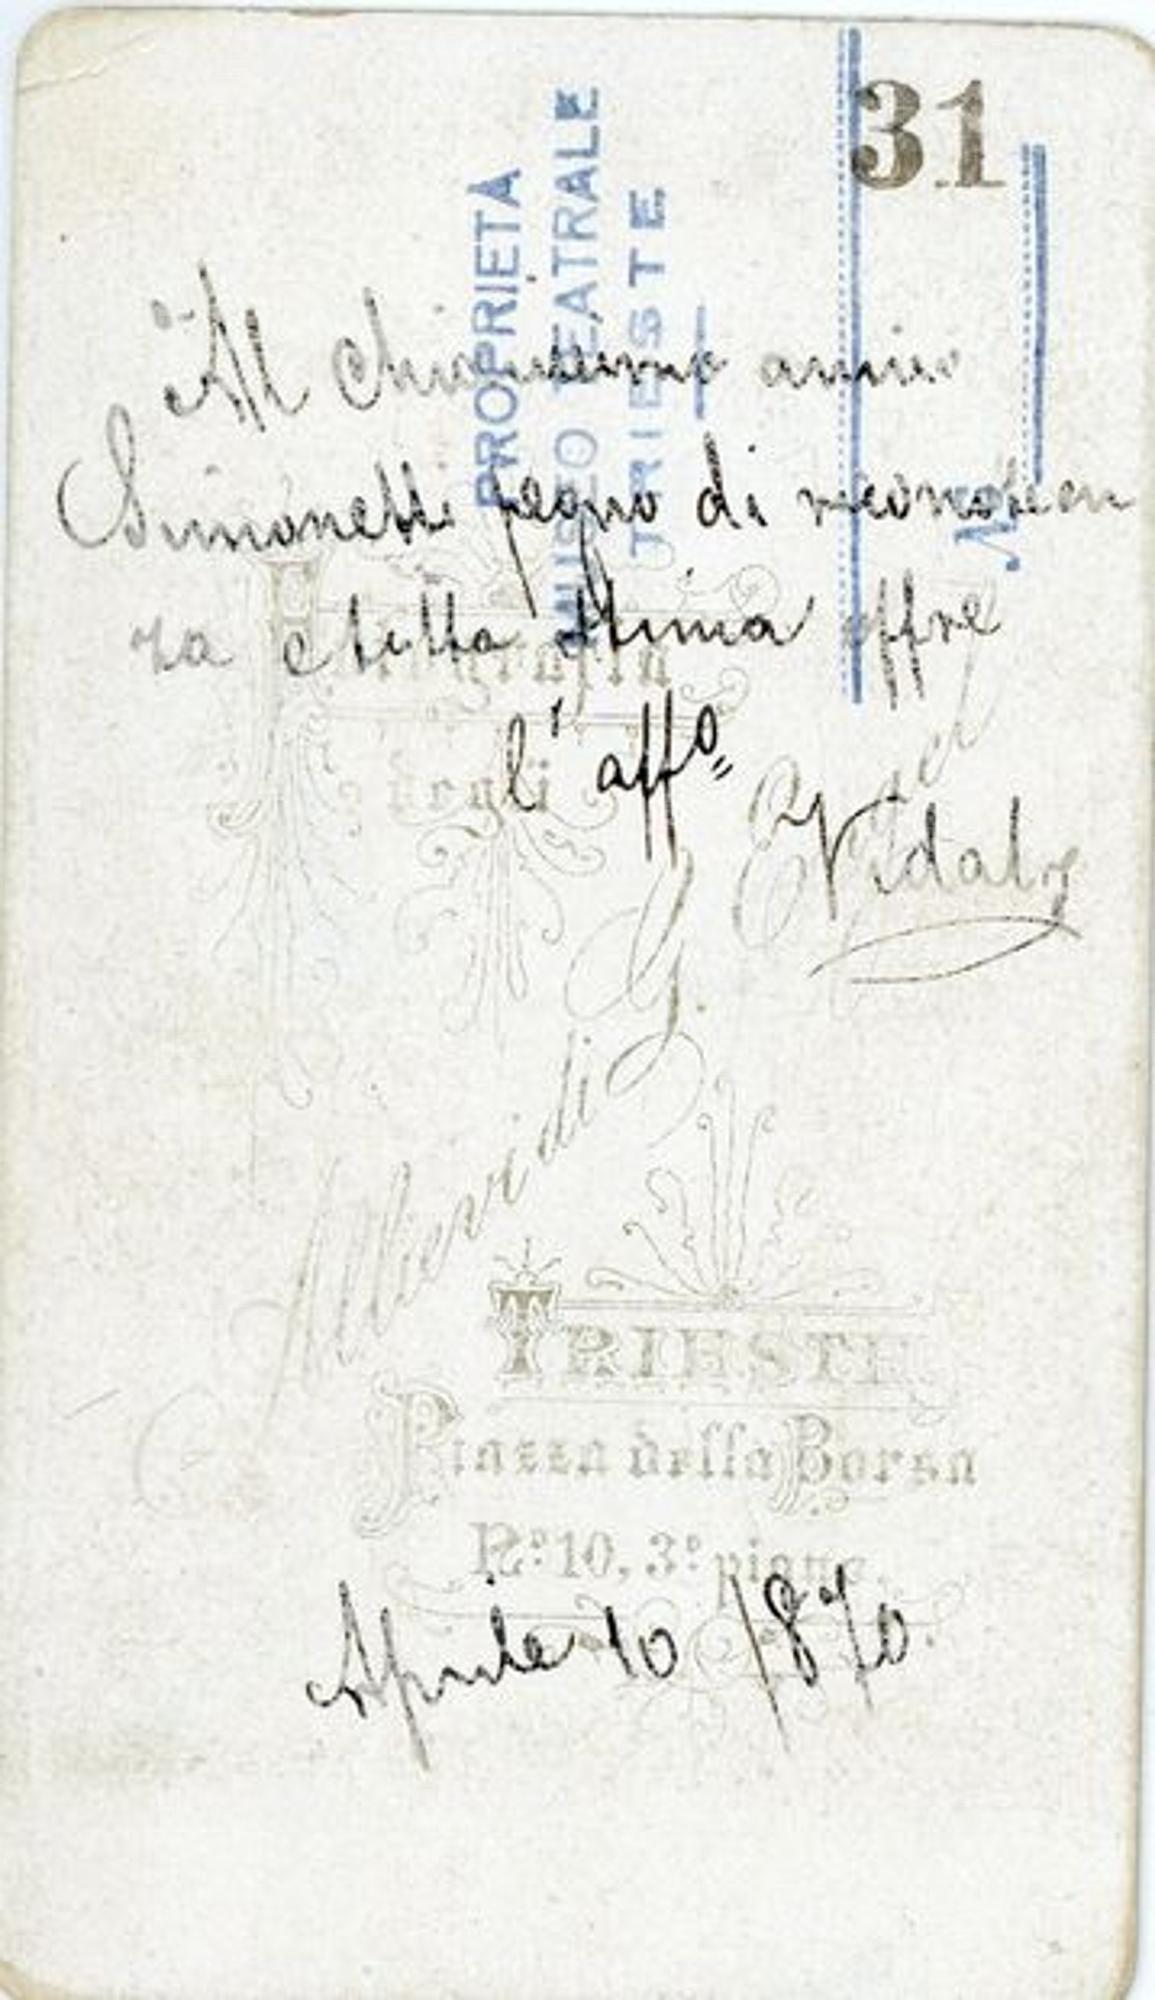 31
PROPRIETÀ
MUSEO TEATRALE
TRIESTE
N.
Al Chiarissimo amico
Simonetti pegno di reconoscen
za e tutta stima offre
l'affo.
Vidaly
Fotografia
degli
Allievi di G. Engel
TRIESTE
Piazza della Borsa
No. 10, 3o. piano.
Aprile 10 1870.